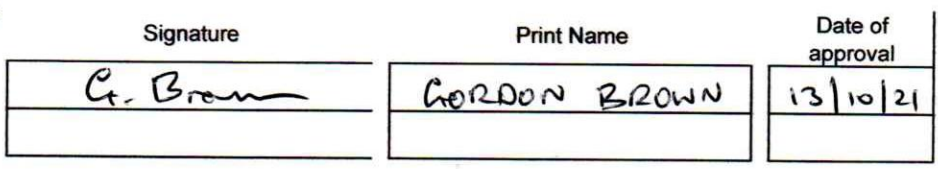 Signature Print Name Date of approval
G. Brown GORDON BROWN 13/10/21